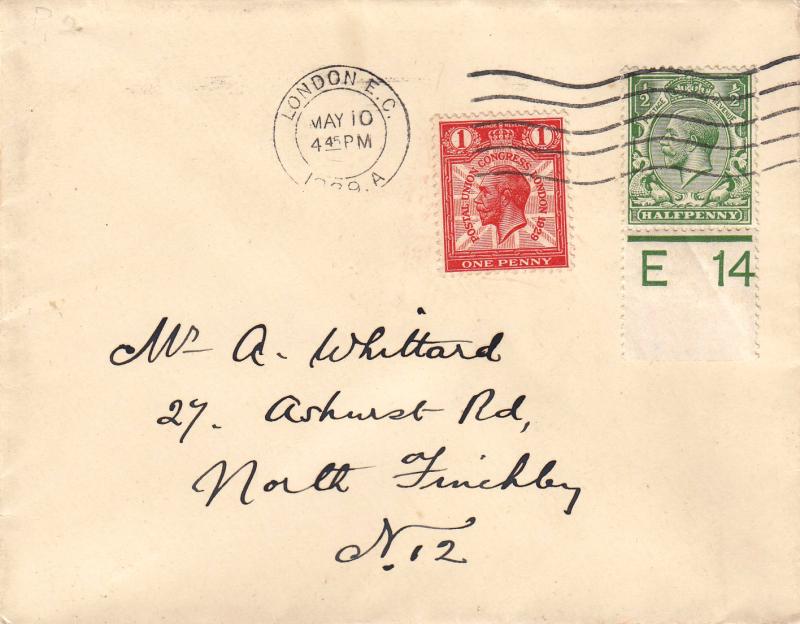 LONDON E.C.
MAY 10
4 45 PM
1929. A
1 POSTAGE REVENUE 1
POSTAL UNION CONGRESS LONDON 1929
ONE PENNY
½ POSTAGE REVENUE ½
HALFPENNY
E 14
Mr A. Whittard
27. Ashurst Rd,
North Finchley
N. 12